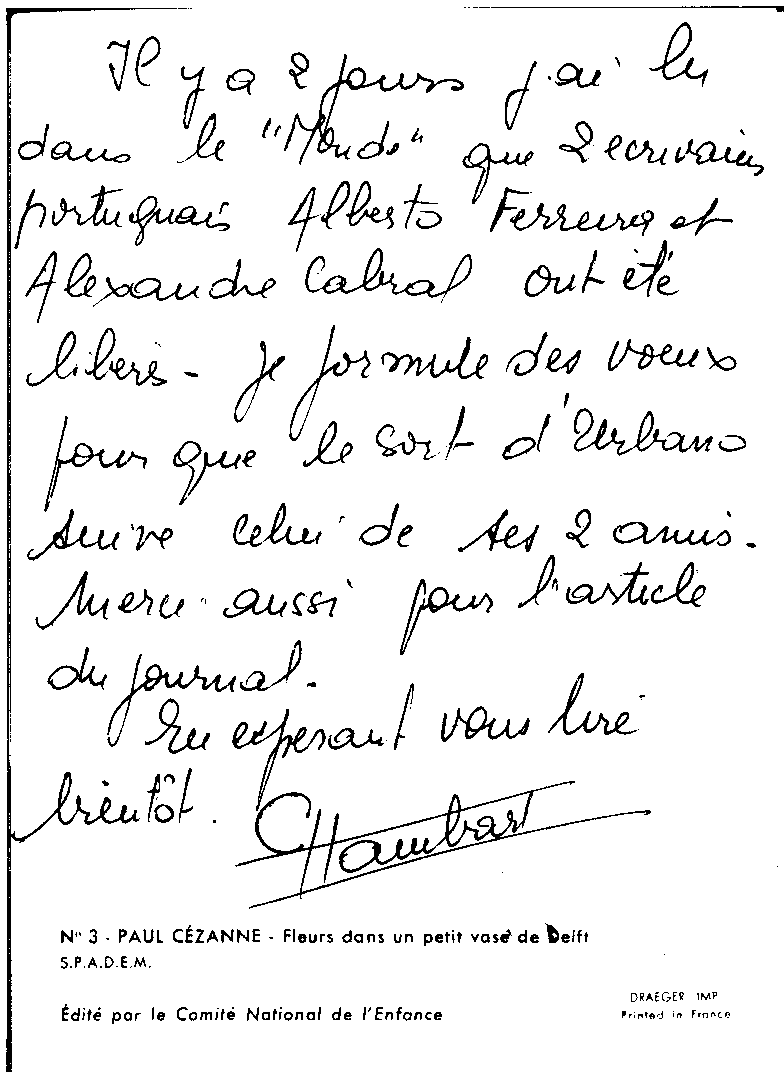 Il y a 2 jours j'ai lu
dans le "Monde" que 2 ecrivains
portugais Alberto Ferreira et
Alexandre Cabral ont été
libérés - Je formule des voeux
pour que le sort d'Urbano
suive celui de ses 2 amis.
Merci aussi pour l'article
du journal.
En espérant vous lire
bientôt.
CHambart
N° 3 - PAUL CÉZANNE - Fleurs dans un petit vase de Delft
S.P.A.D.E.M.
DRAEGER IMP
Édité par le Comité National de l'Enfance
Printed in France